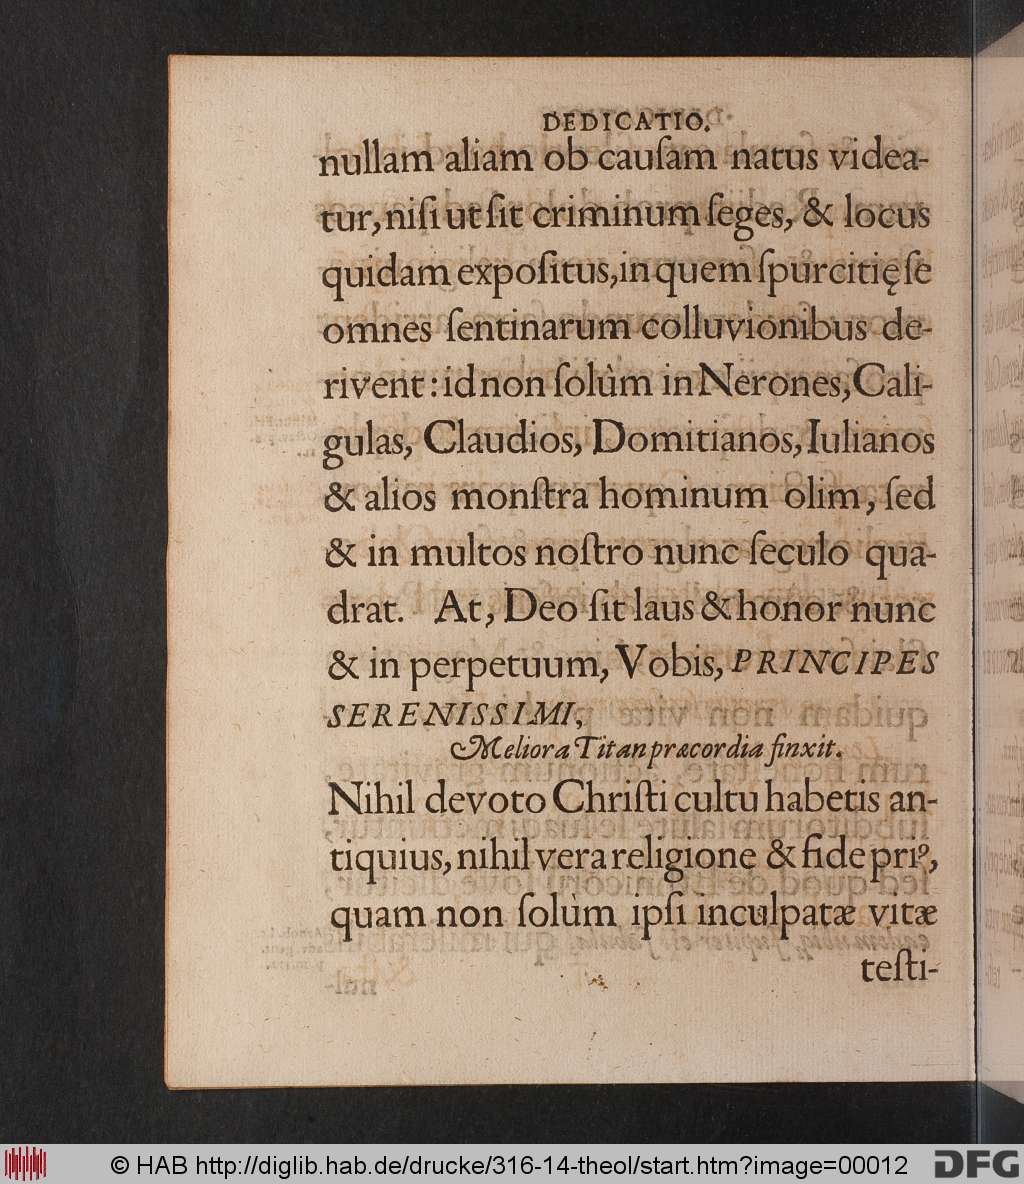 DEDICATIO.
nullam aliam ob cauſam natus videa-
tur, niſi ut ſit criminum ſeges, & locus
quidam expoſitus, in quem ſpurcitię ſe
omnes ſentinarum colluvionibus de-
rivent: id non ſolùm in Nerones, Cali-
gulas, Claudios, Domitianos, Iulianos
& alios monſtra hominum olim, ſed
& in multos noſtro nunc ſeculo qua-
drat. At, Deo ſit laus & honor nunc
& in perpetuum, Vobis, PRINCIPES
SERENISSIMI,
Meliora Titan præcordia finxit.
Nihil devoto Chriſti cultu habetis an-
tiquius, nihil vera religione & fide priꝰ,
quam non ſolùm ipſi inculpatæ vitæ
teſti-
© HAB http://diglib.hab.de/drucke/316-14-theol/start.htm?image=00012
DFG